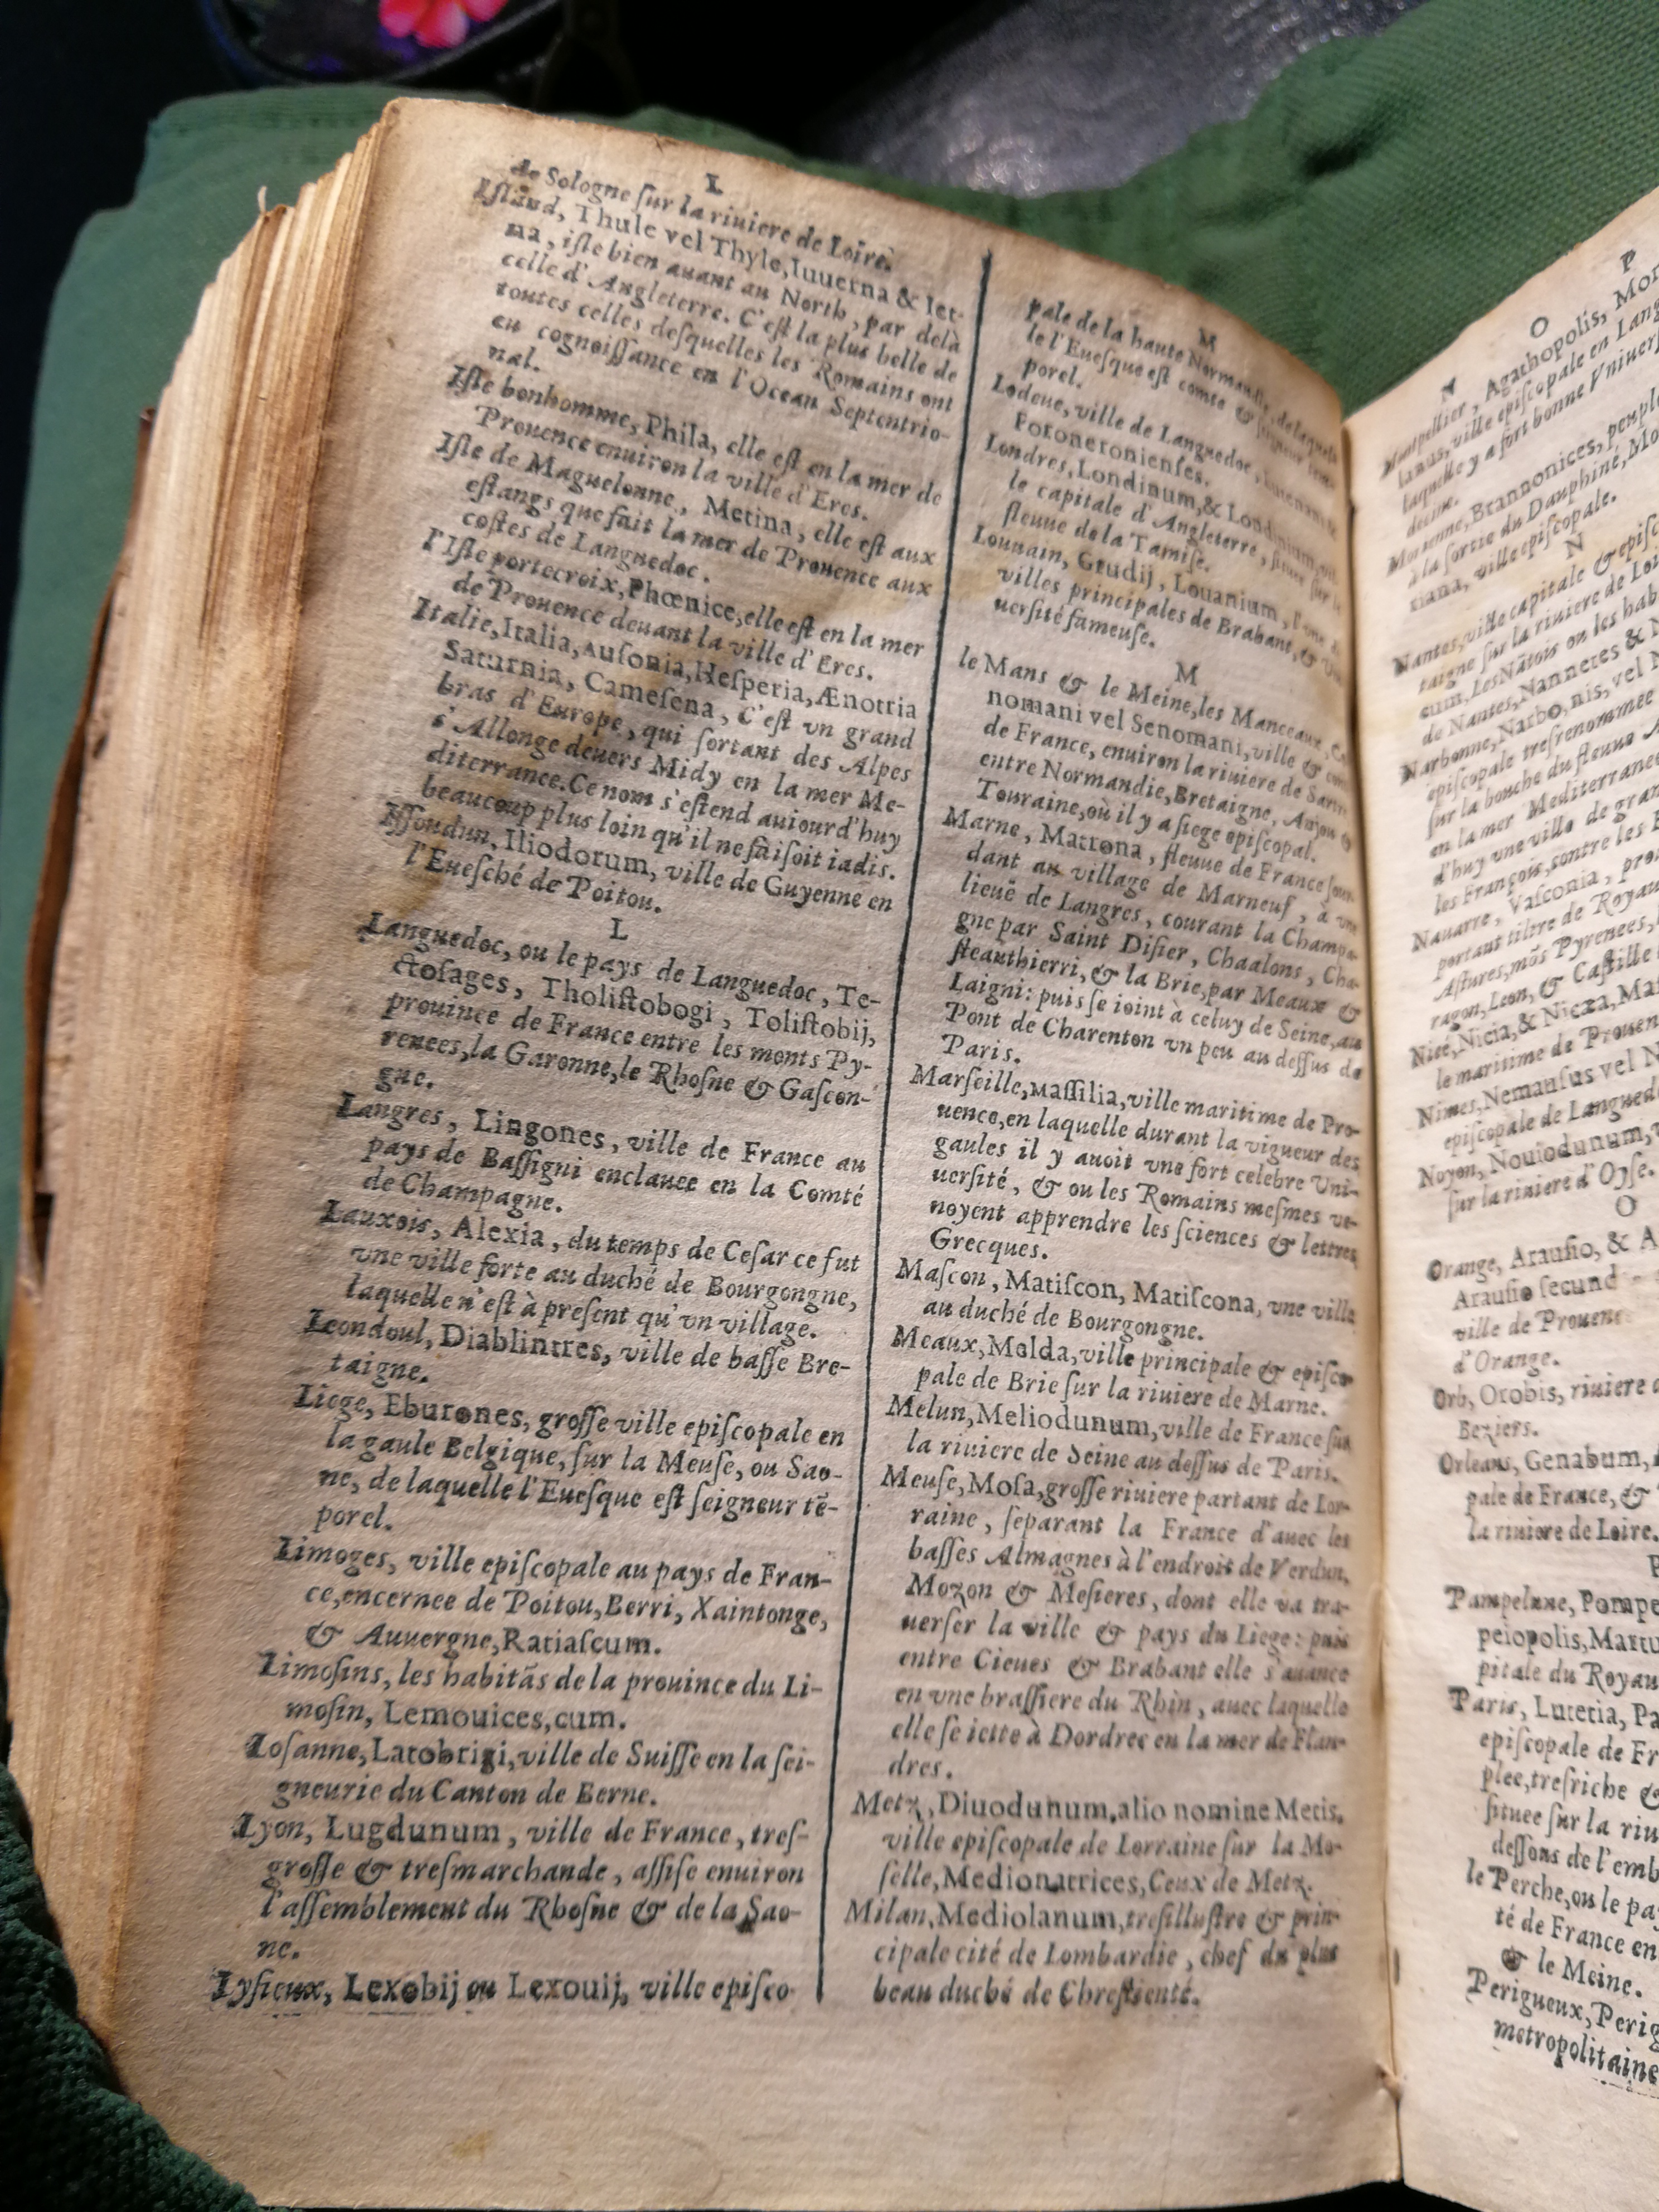 L
de Sologne ſur la riuiere de Loire.
Iſlãd, Thule vel Thyle, Iuuerna & Ier-
na, iſle bien auant au North, par delà
celle d'Angleterre. C'eſt la plus belle de
toutes celles deſquelles les Romains ont
eu cognoiſſance en l'Ocean Septentrio-
nal.
Iſle bonhomme, Phila, elle eſt en la mer de
Prouence enuiron la ville d'Eres.
Iſle de Maguelonne, Metina, elle eſt aux
eſtangs que fait la mer de Prouence aux
coſtes de Languedoc.
l'Iſle portecroix, Phœnice, elle eſt en la mer
de Prouence deuant la ville d'Eres.
Italie, Italia, Auſonia, Heſperia, Ænottia
Saturnia, Cameſena, C'eſt vn grand
bras d'Europe, qui ſortant des Alpes
s'Allonge deuers Midy en la mer Me-
diterrance. Ce nom s'eſtend auiourd'huy
beaucoup plus loin qu'il ne faiſoit iadis.
Iſſoudun, Iliodorum, ville de Guyenne en
l'Eueſché de Poitou.
L
Languedoc, ou le pays de Languedoc, Te-
ctoſages, Tholiſtobogi, Toliſtobij,
prouince de France entre les monts Py-
renees, la Garonne, le Rhoſne & Gaſcon-
gne.
Langres, Lingones, ville de France au
pays de Baſſigni enclauee en la Comté
de Champagne.
Lauxois, Alexia, du temps de Ceſar ce fut
vne ville forte au duché de Bourgongne,
laquelle n'eſt à preſent qu'vn village.
Leondoul, Diablintres, ville de baſſe Bre-
taigne.
Liege, Eburones, groſſe ville epiſcopale en
la gaule Belgique, ſur la Meuſe, ou Sao-
ne, de laquelle l'Eueſque eſt ſeigneur tẽ-
porel.
Limoges, ville epiſcopale au pays de Fran-
ce, encernee de Poitou, Berri, Xaintonge,
& Auuergne, Ratiaſcum.
Limoſins, les habitãs de la prouince du Li-
moſin, Lemouices, cum.
Loſanne, Latobrigi, ville de Suiſſe en la ſei-
gneurie du Canton de Berne.
Lyon, Lugdunum, ville de France, treſ-
groſſe & treſmarchande, aſſiſe enuiron
l'aſſemblement du Rhoſne & de la Sao-
ne.
Lyſieux, Lexobij ou Lexouij, ville epiſco-
M
pale de la haute Normandie, de laquelle
le l'Eueſque eſt comte & ſeigneur tem-
porel.
Lodeue, ville de Languedoc,
Foroneronienſes.
Londres, Londinum, & Londinium, vil-
le capitale d'Angleterre, ſituee ſur le
fleuue de la Tamiſe.
Louuain, Grudij, Louanium, l'vne des
villes principales de Brabant, & Vni-
uerſité fameuſe.
M
le Mans & le Meine, les Manceaux, Ce-
nomani vel Senomani, ville &
de France, enuiron la riuiere de Sarte
entre Normandie, Bretaigne, Anjou &
Touraine, où il y a ſiege epiſcopal.
Marne, Matrona, fleuue de France ſour-
dant au village de Marneuf, à vne
lieuë de Langres, courant la Champa-
gne par Saint Diſier, Chaalons, Cha-
ſteauthierri, & la Brie, par Meaux &
Laigni: puis ſe ioint à celuy de Seine, au
Pont de Charenton vn peu au deſſus de
Paris.
Marſeille, Maſſilia, ville maritime de Pro-
uence, en laquelle durant la vigueur des
gaules il y auoit vne fort celebre Vni-
uerſité, & ou les Romains meſmes ve-
noyent apprendre les ſciences & lettres
Grecques.
Maſcon, Matiſcon, Matiſcona, vne ville
au duché de Bourgongne.
Meaux, Melda, ville principale & epiſco-
pale de Brie ſur la riuiere de Marne.
Melun, Meliodunum, ville de France ſur
la riuiere de Seine au deſſus de Paris.
Meuſe, Moſa, groſſe riuiere partant de Lor-
raine, ſeparant la France d'auec les
baſſes Almagnes à l'endroit de Verdun,
Mozon & Meſieres, dont elle va tra-
uerſer la ville & pays du Liege: puis
entre Cieues & Brabant elle s'auance
en vne braſſiere du Rhin, auec laquelle
elle ſe iette à Dordrec en la mer de Flan-
dres.
Metz, Diuodunum, alio nomine Metis,
ville epiſcopale de Lorraine ſur la Mo-
ſelle, Medionatrices, Ceux de Metz.
Milan, Mediolanum, treſilluſtre & prin-
cipale cité de Lombardie, chef du plus
beau duché de Chreſtienté.
N O P
Montpellier, Agathopolis, Mon
lanus, ville epiſcopale en Lang
laquelle y a fort bonne Vniuerſ
decine.
Morienne, Brannonices, peuple
à la ſortie du Dauphiné, Mo
riana, ville epiſcopale.
N
Nantes, ville capitale & epiſc
taigne ſur la riuiere de Loi
cum, Les Nãtois ou les hab
de Nantes, Nannetes & N
Narbonne, Narbo, nis, vel N
epiſcopale treſrenommee
ſur la bouche du fleuue A
en la mer Mediterranee
d'huy vne ville de gran
les François, contre les E
Nauarre, Vaſconia, pro
portant tiltre de Royau
Aſtures, mõs Pyrenees,
ragon, Leon, & Caſtille
Nice, Nicia, & Nicæa, Maſ
le maritime de Prouen
Nimes, Nemauſus vel N
epiſcopale de Langued
Noyon, Nouiodunum, v
ſur la riuiere d'Oyſe.
O
Orange, Arauſio, & A
Arauſio ſecund
ville de Prouen
d'Orange.
Orb, Orobis, riuiere
Beziers.
Orleans, Genabum, A
pale de France, &
la riuiere de Loire.
P
Pampelune, Pompe
peiopolis, Martu
pitale du Royau
Paris, Lutetia, Pa
epiſcopale de Fr
plee, treſriche &
ſituee ſur la riu
deſſous de l'emb
le Perche, ou le pay
té de France en
& le Meine.
Perigueux, Perig
metropolitaine